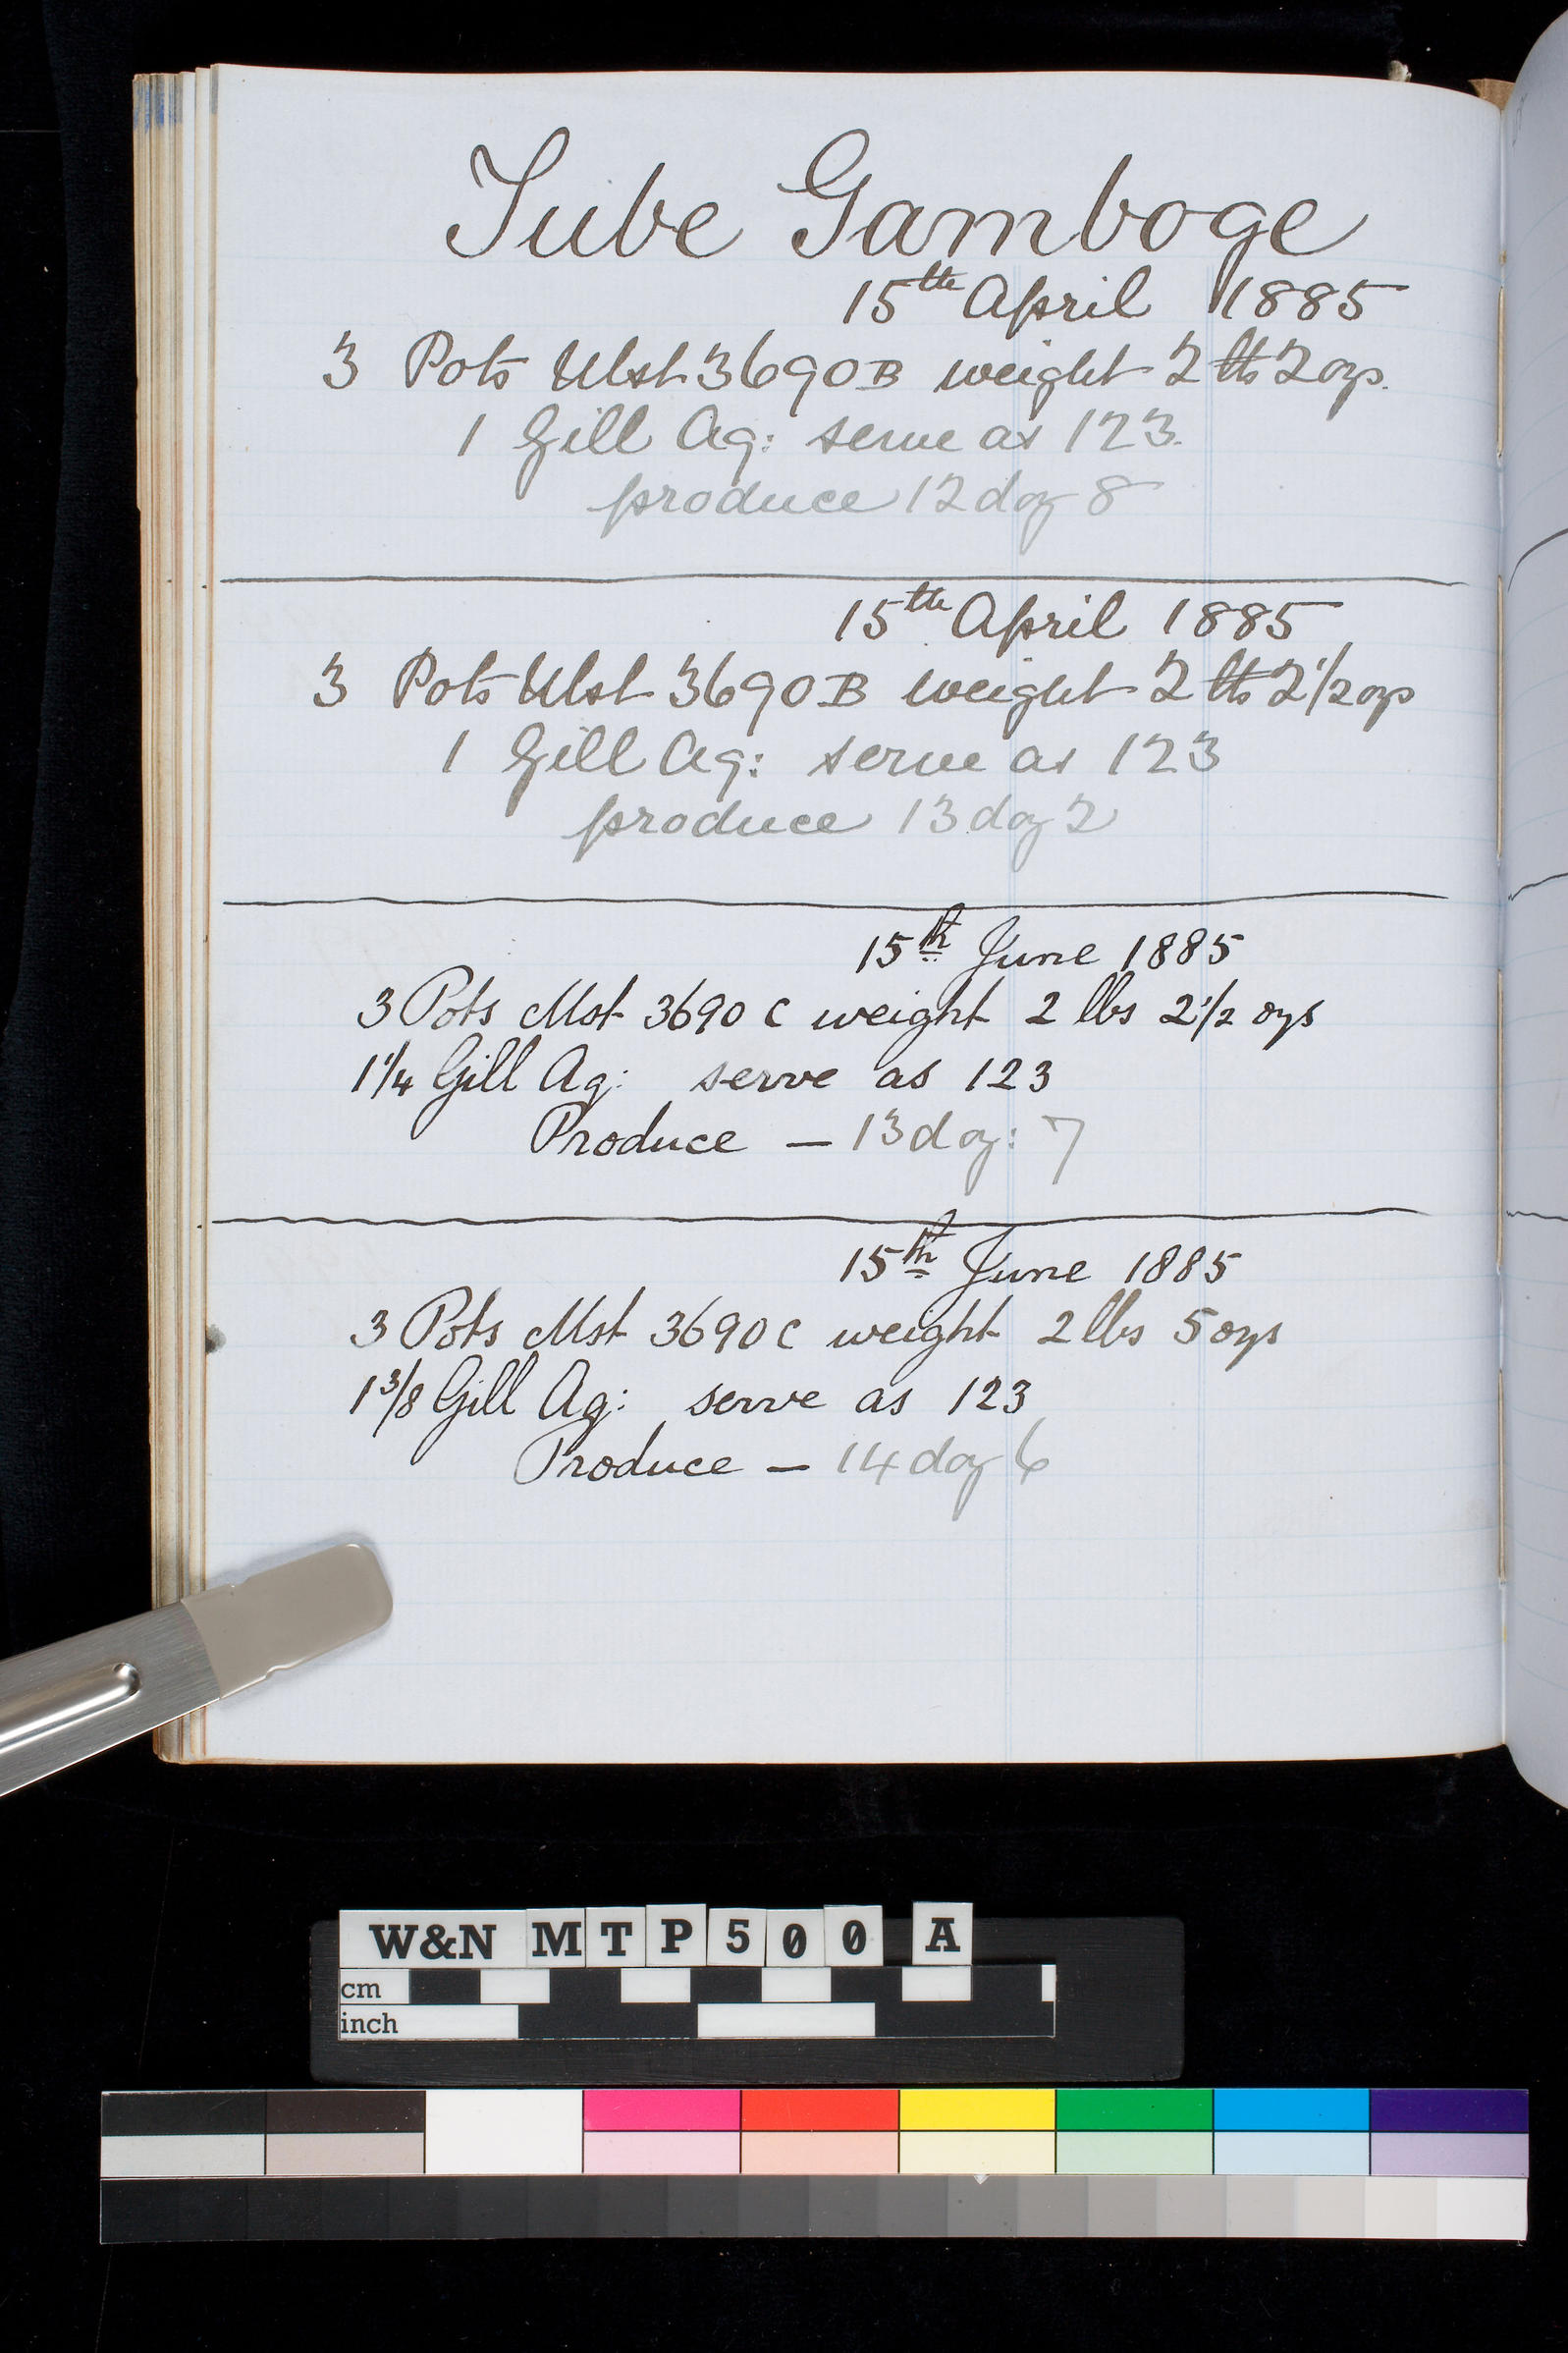 Tube Gamboge
15th April 1885
3 Pots Mst 3690B weight 2 lbs 2 ozs.
1 Gill Aq: serve as 123.
produce 12 doz 8
15th April 1885
3 Pots Mst 3690B weight 2 lbs 2 1/2 ozs
1 Gill Aq: serve as 123
produce 13 doz 2
15th June 1885
3 Pots Mst 3690 C weight 2 lbs 2 1/2 ozs
1 1/4 Gill Aq: serve as 123
Produce — 13 doz: 7
15th June 1885
3 Pots Mst 3690 C weight 2 lbs 5 ozs
1 3/8 Gill Aq: serve as 123
Produce — 14 doz 6
W&N MTP500 A
cm
inch